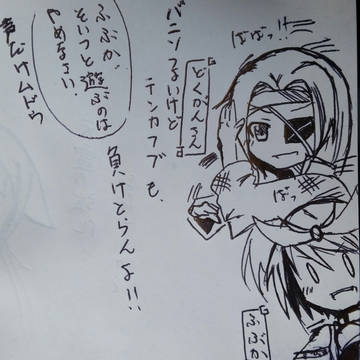 ばばっ!!
バニンつよいけど
テンカフブも、
負けとらんよ!!
どくがんさん
ばっ
ふぶが、
そいつと遊ぶのは
やめなさい。
声だけムドウ
ふぶか